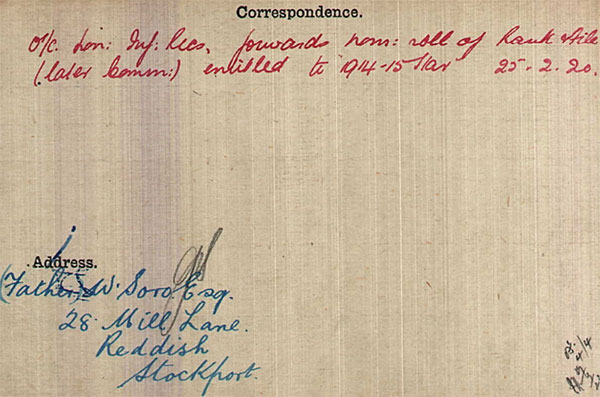 Correspondence.
O/c. Lon: Inf: Recs, forwards nom: roll of Rank & File
(later Comm:) entitled to 1914-15 Star 25.2.20.
Address.
(Father) W. Soro. Esq.
28 Mill Lane.
Reddish
Stockport.